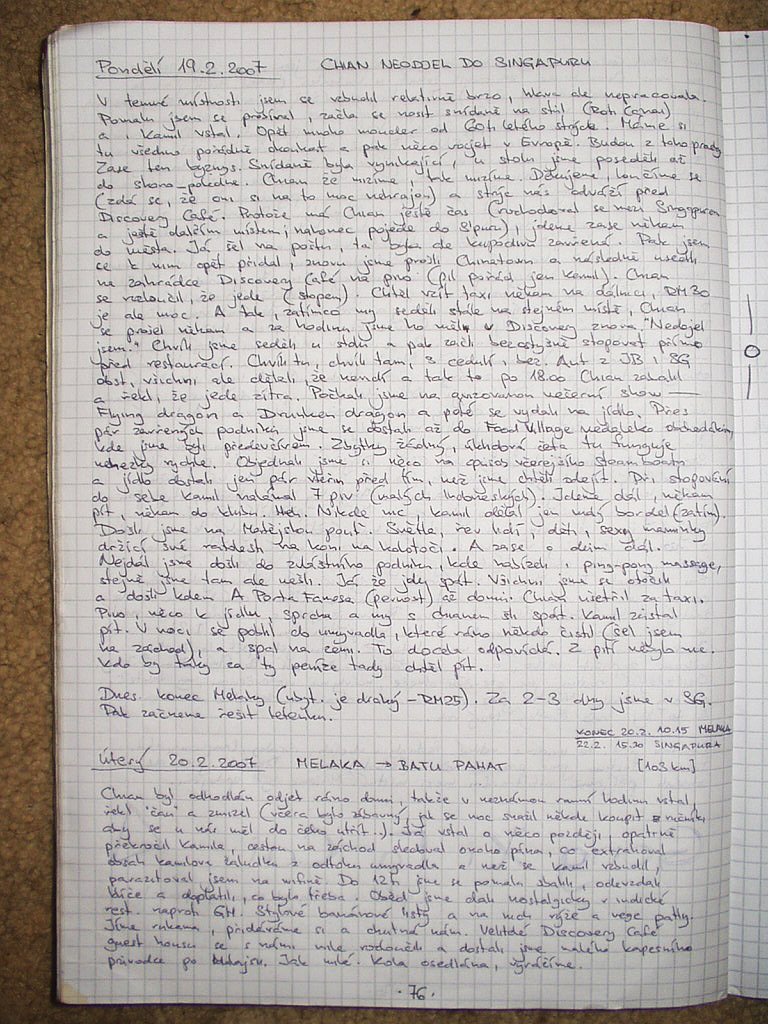 Pondělí 19.2.2007 CHIAN NEODJEL DO SINGAPURU
V temné místnosti jsem se vzbudil relativně brzo, hlava ale nepracovala.
Pomalu jsem se probíral, začla se nosit snídaně na stůl (Roti Canai)
a i Kamil vstal. Opět mnoho mouder od 60ti letého strýce. Máme si
tu všechno pořádně okoukat a pak něco rozjet v Evropě. Budou z toho prachy.
Zase ten byznys. Snídaně byla vynikající, u stolu jsme poseděli až
do skoro-poledne. Chian že mizíme, tak mizíme. Děkujeme, loučíme se
(zdá se, že oni si na to moc nehrajou) a strýc nás odváží před
Discovery Café. Protože má Chian ještě čas (rozhodoval se mezi Singapurem
a ještě dalším místem, nakonec pojede do S'puru), jdeme zase někam
do města. Já šel na poštu, ta byla ale kupodivu zavřená. Pak jsem
se k nim opět přidal, znovu jsme prošli Chinatown a následně usedli
na zahrádce Discovery Café na pivo (pil pořád jen Kamil). Chian
se rozloučil, že jede (stopem). Chtěl vzít taxi někam na dálnici, RM30
je ale moc. A tak, zatímco my seděli stále na stejném místě, Chian
se projel někam a za hodinu jsme ho měli v Discovery znova. "Neodjel
jsem." Chvíli jsme seděli u stolu a pak začli bezostyšně stopovat přímo
před restaurací. Chvíli tu, chvíli tam, s cedulí, bez. Aut z JB i SG
dost, všichni ale dělali, že nevidí a tak to po 18.00 Chian zabalil
a řekl, že jede zítra. Počkali jsme na avizovanou večerní show —
Flying dragon a Drunken dragon a poté se vydali na jídlo. Přes
pár zavřených podniků jsme se dostali až do Food Village nedaleko obchoďáku,
kde jsme byli předevčírem. Zbytky žádný, úklidová četa tu funguje
nehezky rychle. Objednali jsme si něco na způsob včerejšího steamboatu
a jídlo dostali jen pár vteřin před tím, než jsme chtěli odejít. Při stopování
do sebe Kamil nalámal 7 piv (malých indonéských). Jdeme dál, někam
pít, někam do klubu. Heh. Nikde nic, Kamil dělal jen malý bordel (zatím).
Došli jsme na Matějskou pouť. Světla, řev lidí, děti, sexy maminky
držící své ratolesti na koni na kolotoči. A zase o dům dál.
Nejdál jsme došli do zvláštního podniku, kde nabízeli i ping-pong massage,
stejně jsme tam ale nešli. Já že jdu spát. Všichni jsme se otočili
a došli kolem A Porta Famosa (pevnost) až domů. Chian ušetřil za taxi.
Pivo, něco k jídlu, sprcha a my s chianem šli spát. Kamil zůstal
pít. V noci se poblil do umyvadla, které ráno někdo čistil (šel jsem
na záchod), a spal na zemi. To docela odpovídá. Z pití nebylo nic.
Kdo by taky za ty peníze tady chtěl pít.
Dnes konec Melaky (ubyt. je drahý - RM25). Za 2-3 dny jsme v SG.
Pak začneme řešit letenku.
KONEC 20.2. 10.15 MELAKA
22.2. 15.30 SINGAPURA
Úterý 20.2.2007 MELAKA → BATU PAHAT [103 km]
Chian byl odhodlán odjet ráno domů, takže v neznámou ranní hodinu vstal,
řekl "čau" a zmizel (včera bylo zábavný, jak se moc snažil někde koupit ručník
aby se u nás měl do čeho utřít.). Já vstal o něco později, opatrně
překročil Kamila, cestou na záchod sledoval onoho pána, co extrahoval
obsah Kamilova žaludku z odtoku umyvadla a než se Kamil vzbudil,
parazitoval jsem na wifině. Do 12h jsme se pomalu sbalili, odevzdali
klíče a doplatili, co bylo třeba. Oběd jsme dali nostalgicky v indické
rest. naproti GH. Stylové banánové listy a na nich rýže a vege patly.
Jíme rukama, přidáváme si a chutná nám. Velitelé Discovery Café
guest housu se s námi mile rozloučili a dostali jsme malého kapesního
průvodce po Malajsii. Jak milé. Kola osedlána, vyrážíme.
· 76 ·